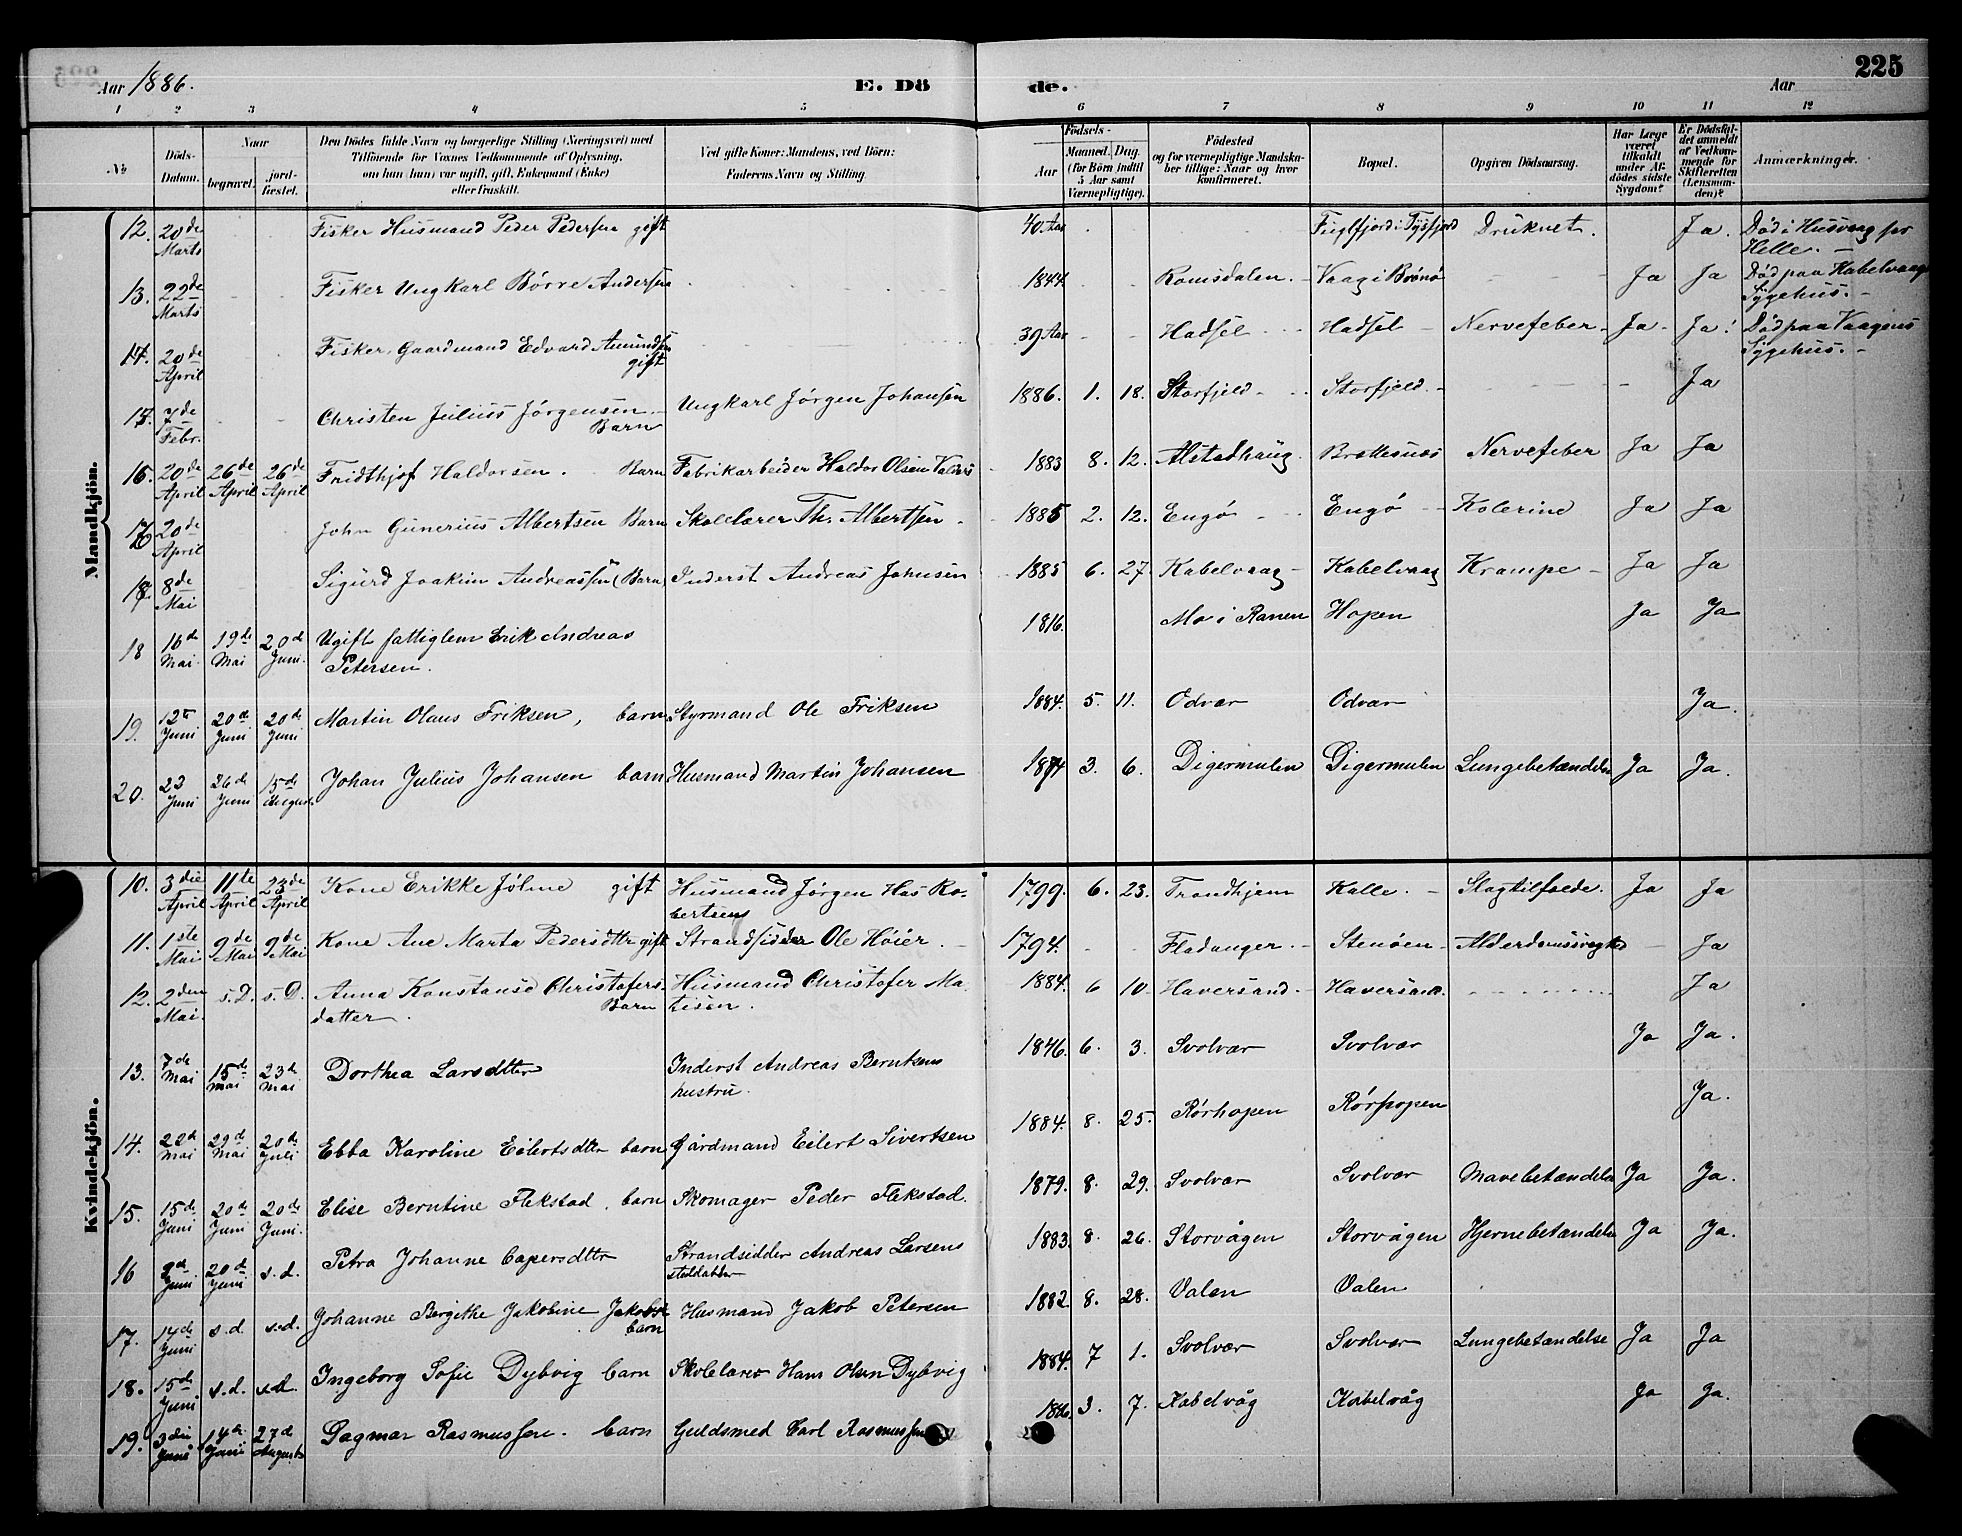 225
Aar 1886.
E. Dö
de.
Aar
1 2 3 4 5 6 7 8 9 10 11 12
No
Döds-
Datum.
Naar
begravet.
jord-
fæstet.
Den Dödes fulde Navn og borgerlige Stilling (Næringsvei) med
Tilföiende for Voxnes Vedkommende af Oplysning,
om han (hun) var ugift, gift, Enkemand (Enke)
eller fraskilt.
Ved gifte Koner: Mandens, ved Börn:
Faderens Navn og Stilling.
Födsels-
Aar
Maaned. Dag.
(for Börn indtil
5 Aar samt
Værnepligtige).
Födested
og for værnepligtige Mandska-
ber tillige: Naar og hvor
konfirmeret.
Bopæl.
Opgiven Dödsaarsag.
Har Læge
været
tilkaldt
under Af-
dödes sidste
Sygdom?
Er Dödsfal-
det anmeldt
af Vedkom-
mende for
Skifteretten
(Lensman-
den)?
Anmærkninger.
Mandkjön.
12. 20de Marts Fisker Husmand Peder Pedersen gift 40 Aar Fuglfjord i Tysfjord Druknet. Ja. Död i Husvaag pr
Helle.
13. 22de Marts Fisker Ungkarl Börre Andersen 1844 Romsdalen. Vaag i Brönö Ja Ja Död paa Kabelvaag
Sygehus.
14. 20de April Fisker, Gaardmand Edvard Amundsen gift 39 Aar Hadsel Hadsel Nervefeber Ja Ja Död paa Vaagens
Sygehus.
15. 7de Febr. Christen Julius Jörgensen Barn Ungkarl Jörgen Johansen 1886. 1. 18. Storfjeld Storfjeld Ja
16. 20de April 26de April 26de April Fridthjof Haldorsen. Barn Fabrikarbeider Haldor Olsen 1883 8. 12. Alstadhaug Brettesnæs Nervefeber Ja Ja
20de April John Gunerius Albertsen Barn Skolelærer Th. Albertsen 1885 2. 12. Engö Engö Kolerine Ja Ja
8de Mai Sigurd Joakim Andreassen (Barn) Inderst Andreas Johnsen 1885 6. 27. Kabelvaag Kabelvaag Krampe Ja Ja
18 16d Mai. 19de Mai 20d Juni. Ugift fattiglem Erik Andreas
Petersen. 1816. Mo i Ranen Hopen Ja Ja
19. 12te Juni 20d Juni 20de Juni Martin Olaus Friksen, barn Styrmand Ole Friksen 1884. 5. 11. Odvær Odvær Ja.
20. 23 Juni 26de Juni 15de August. Johan Julius Johansen barn Husmand Martin Johansen 3. 6. Digermulen Digermulen Lungebetændelse Ja Ja.
Kvindekjön.
10. 3die April 11te April 23de April Kone Erikke Jöhne gift Husmand Jörgen Has Ro-
bertsens 1799. 6. 23. Trondhjem Kalle. Slagtilfælde. Ja Ja
11. 1ste Mai 9de Mai 9de Mai Kone Ane Marta Pedersdtr gift Strandsidder Ole Höier. 1794. Fladanger. Stenöen Alderdomssvaghed Ja
12. 2den Mai. s.D. s.D. Anna Konstanse Christofers-
datter. Barn Husmand Christofer Ma-
tisen. 1884. 6 10 Haversand. Haversand. Ja
13. 7de Mai 15de Mai 23de Mai Dorthea Larsdtter Inderst Andreas Berntsens
hustru. 1846. 6. 3. Svolvær Svolvær Ja Ja.
14. 22d Mai 29d Mai 20de Juli Ebba Karoline Eilertsdtr barn Gårdmand Eilert Sivertsen 1884. 8. 25. Rörhopen Rörhopen Ja.
15. 15de Juni 20de Juni 20de Juni. Elise Berntine Flekstad. barn Skomager Peder Flekstad. 1879. 8. 29. Svolvær Svolvær Mavebetændelse Ja Ja.
16 Juni 20de Juni s.d. Petra Johanne Caspersdttr Strandsidder Andreas Larsens
steddatter 1883. 8. 26. Storvågen Storvågen Hjernebetændelse Ja Ja.
17. 14de Juni s.d. s.d. Johanne Bergithe Jakobine barn Husmand Jakob Petersen 1882. 8. 28. Valen Valen
18. 15de Juni s.d. s.d. Ingeborg Sofie Dybvig barn Skolelærer Hans Olsen Dybvig 1884. 7 1. Svolvær Svolvær Lungebetændelse Ja Ja
19. 3die Juni 14de Juni 27d August Dagmar Rasmussen. barn Guldsmed Carl Rasmussen 1886. 3. 7. Kabelvåg Kabelvåg Ja Ja.